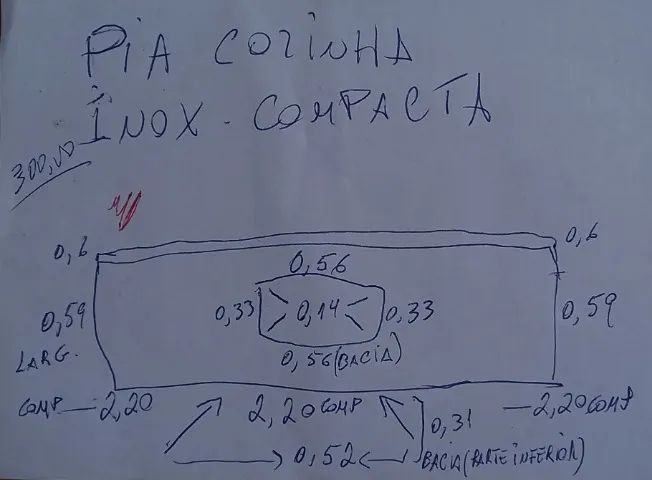 PIA COZINHA
INOX - COMPACTA
300,00
0,6
0,6
0,56
0,59
0,33
0,14
0,33
0,59
LARG.
0,56 (BACIA)
COMP 2,20
2,20 COMP
2,20 COMP
0,31
0,52
BACIA (PARTE INFERIOR)